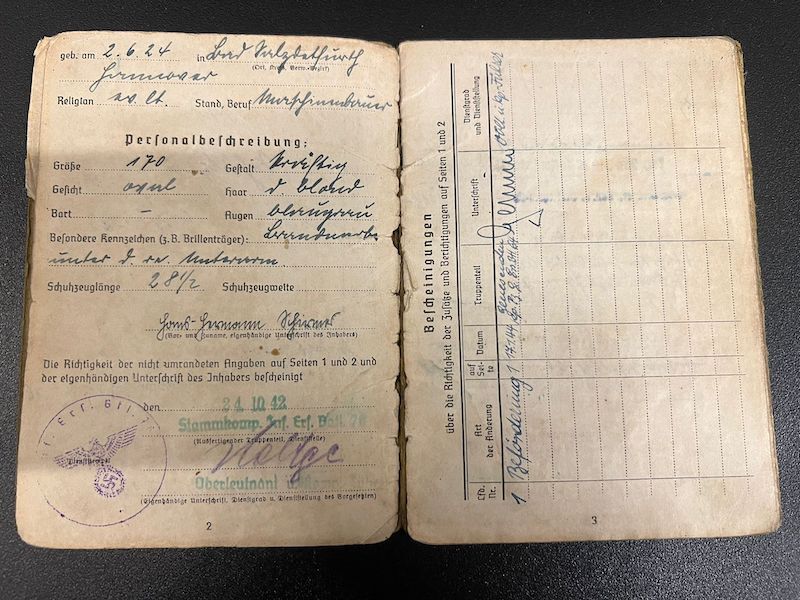 geb. am 2.6.24 in Bad Salzdetfurth
(Ort, Kreis, Verw.-Bezirk)
Hannover
Religion ev. lt. Stand, Beruf Maschinenbauer
Personalbeschreibung:
Größe 170 Gestalt kräftig
Gesicht oval Haar d. blond
Bart - Augen blaugrau
Besondere Kennzeichen (z.B. Brillenträger): Brandnarbe
unter d. re. Unterarm.
Schuhzeuglänge 28 1/2 Schuhzeugweite
Hans-Hermann Schirmer
(Vor- und Zuname, eigenhändige Unterschrift des Inhabers)
Die Richtigkeit der nicht umrandeten Angaben auf Seiten 1 und 2 und
der eigenhändigen Unterschrift des Inhabers bescheinigt
den 24.10.42
Stammkomp. Inf. Ers. Batl.
(Ausfertigender Truppenteil, Dienststelle)
Dienststempel
Oberleutnant u.
(Eigenhändige Unterschrift, Dienstgrad u. Dienststellung des Vorgesetzten)
2
Bescheinigungen
über die Richtigkeit der Zusätze und Berichtigungen auf Seiten 1 und 2
Lfd. Nr.
Art der Änderung
auf Sei- te
Datum
Truppenteil
Unterschrift
Dienstgrad und Dienststellung
1 Beförderung 1 17.1.44
3